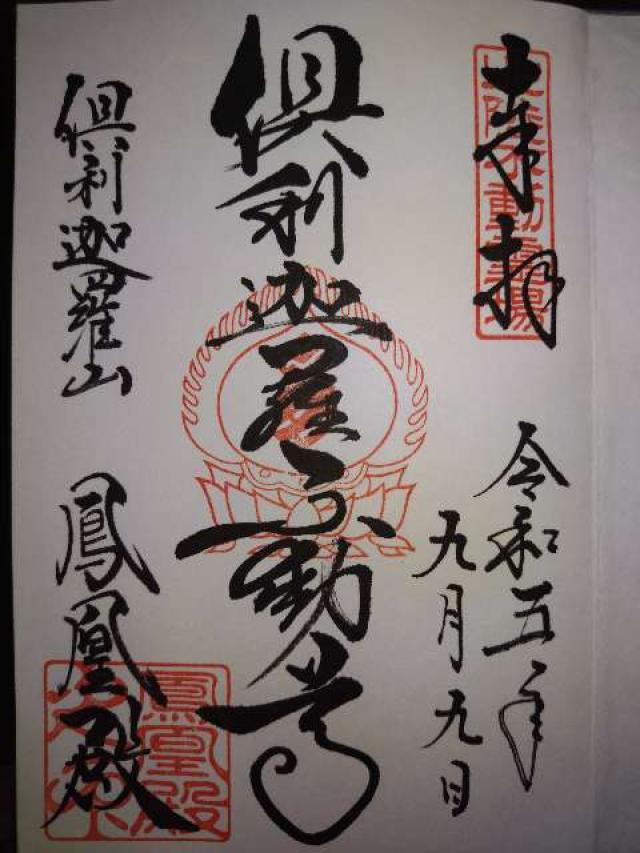 奉拝
北陸不動霊場
令和五年
九月九日
倶利迦羅不動尊
倶利迦羅山
鳳凰殿
鳳凰殿